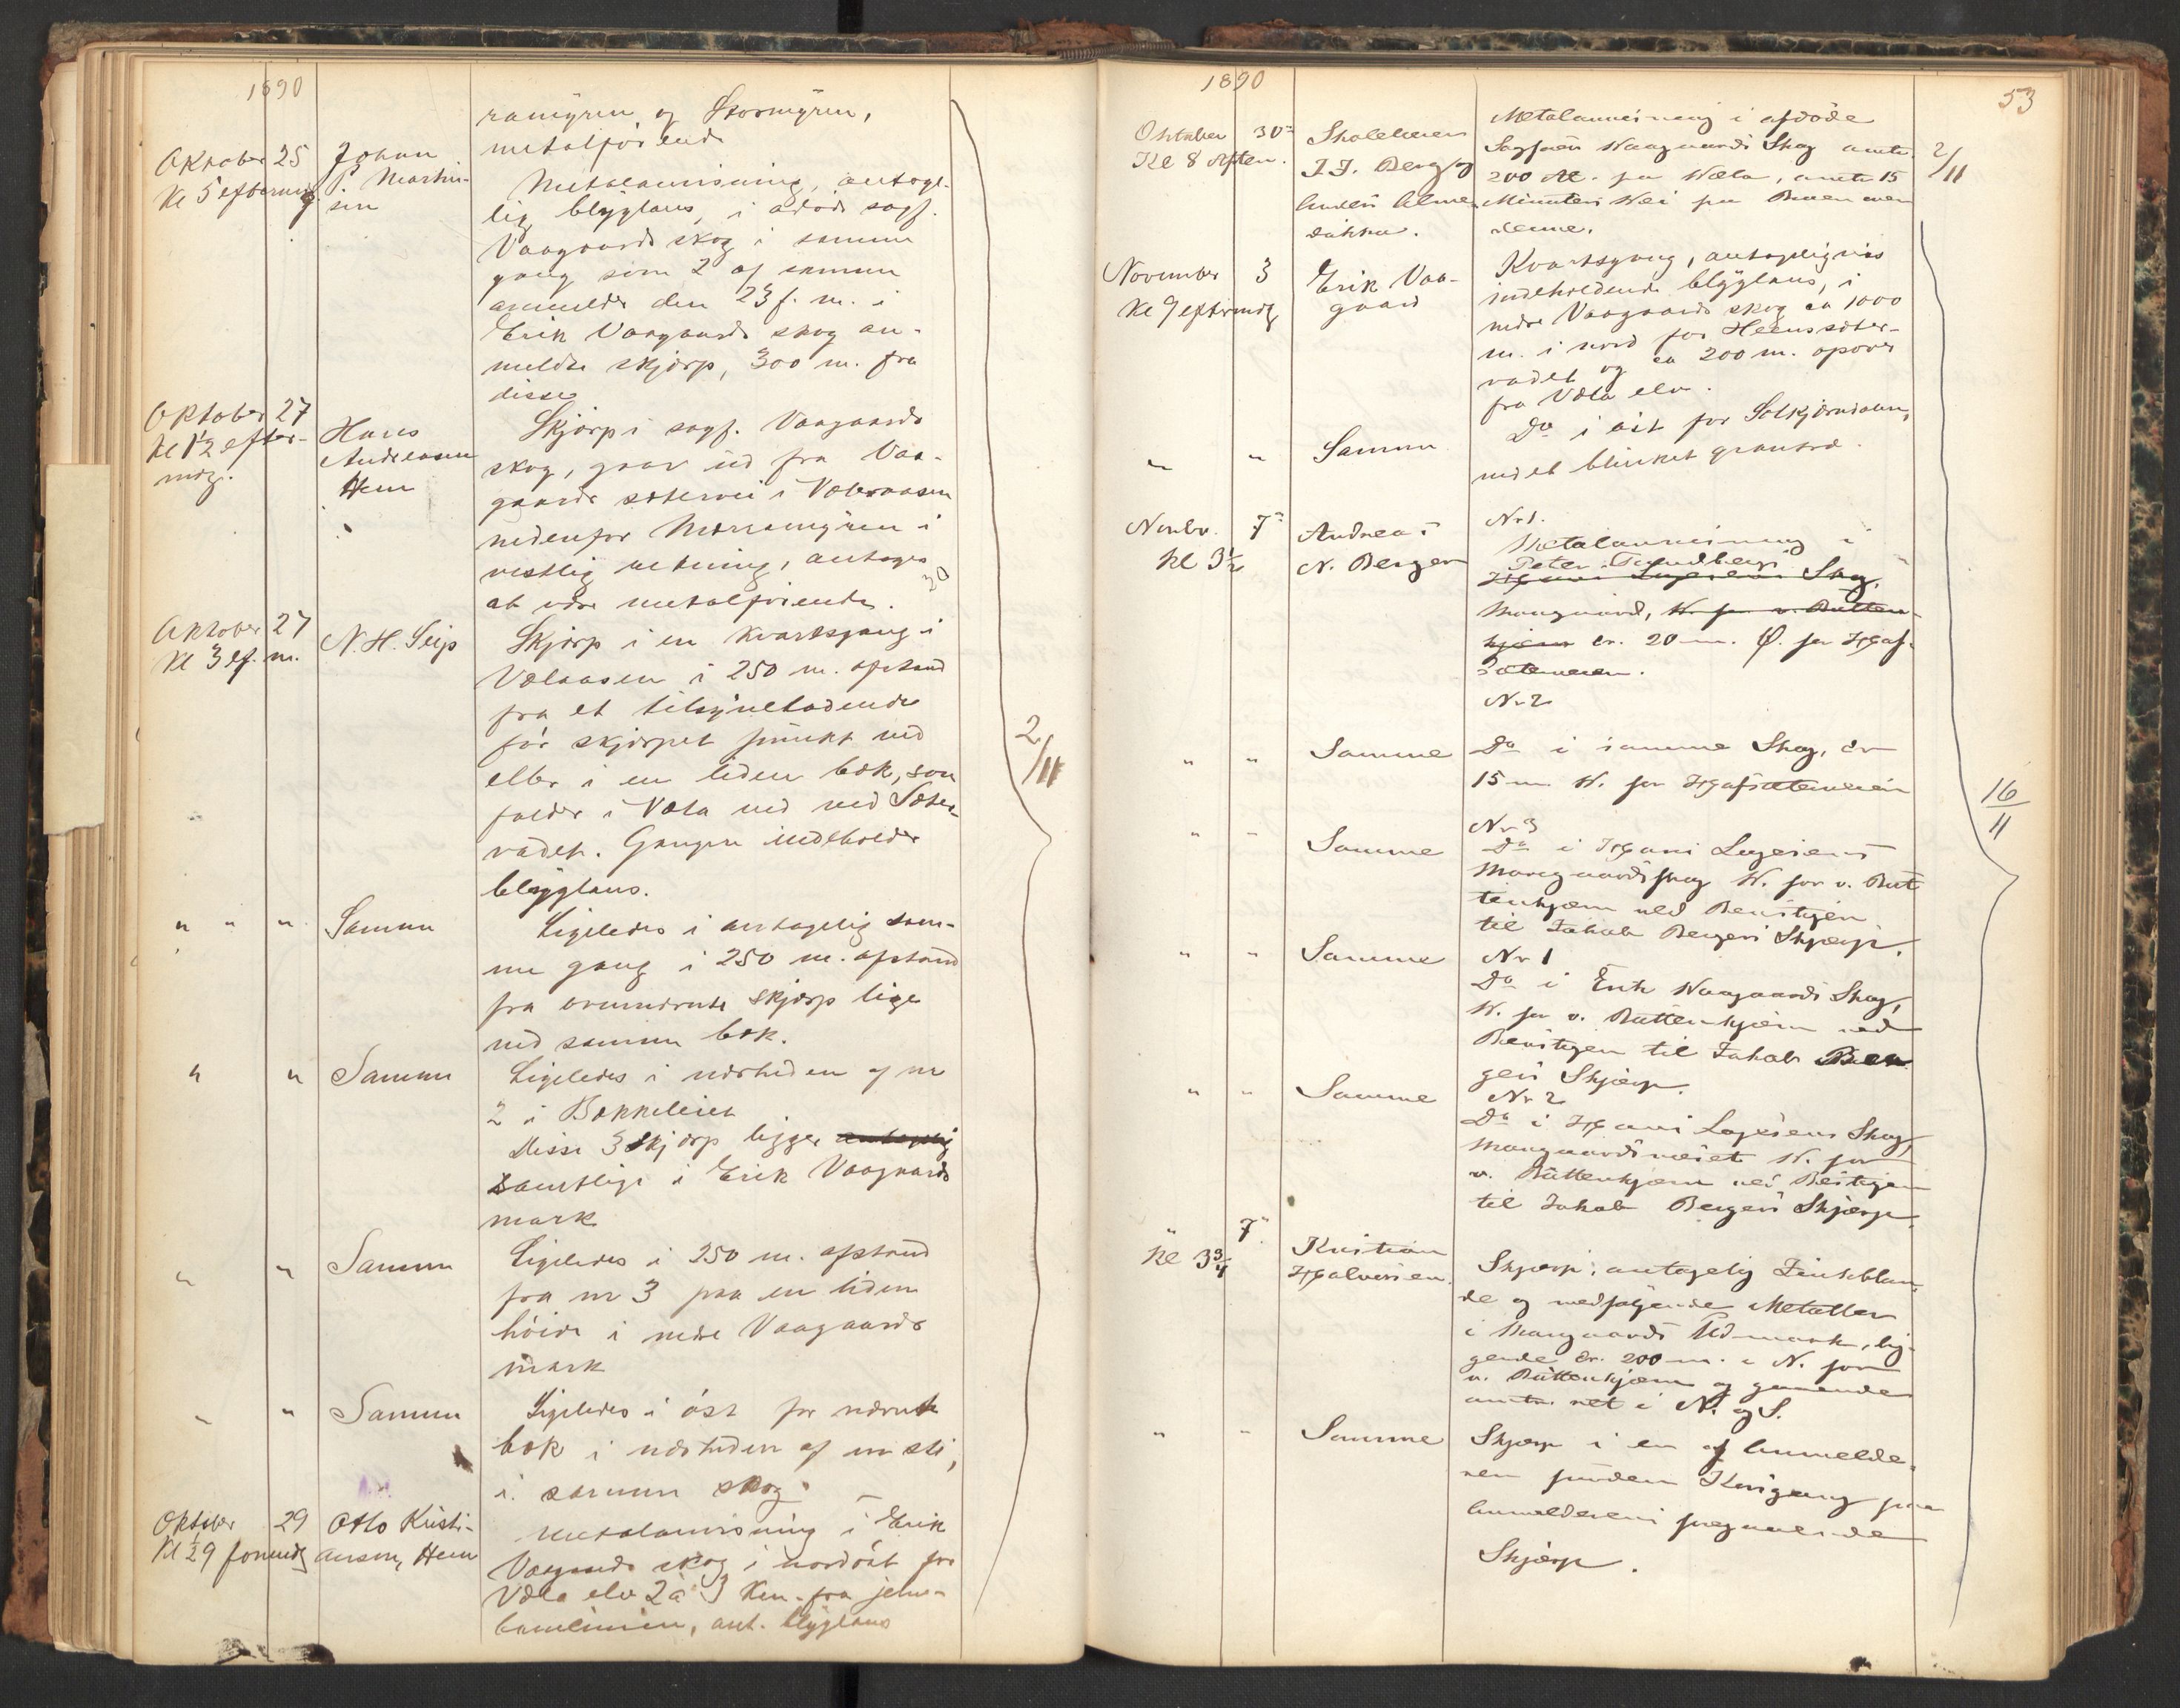 1890
ramyren og Stormyren,
metalförende
Oktober 25
Kl 5 eftermidg
Johan
P. Martin-
sen
Metalanvisning, antage-
lig blyglans, i afdöde sogf.
Vaagaards skog i samme
gang som 2 af samme
anmelder den 23 f. m. i
Erik Vaagaards skog an-
meldte skjærp, 300 m. fra
disse
Oktober 27
Kl 12 efter-
midg.
Hans
Andreasen
Hem
Skjærp i sogf. Vaagaards
skog, gaar ud fra Vaa-
gaards sætervei i Vælaaasen
nedenfor Mærramyren i
vestlig retning, antages
at være metalförende.
Oktober 27
Kl 3 ef. m.
N. H. Seip
Skjærp i en kvartsgang i
Vælaasen i 250 m. afstand
fra et tilsyneladende
för skjærpet punkt ved
eller i en liden bæk, som
falder i Væla ned ved Sæter-
vadet. Gangen indeholder
blyglans.
2/11
" " " Samme
Ligeledes i antagelig sam-
me gang i 250 m. afstand
fra ovennævnte skjærp lige
ved samme bæk.
" " Samme
Ligeledes i nærheden af nr
2 i Bækkeleiet
Disse 3 skjærp ligger antagelig
samtlige i Erik Vaagaards
mark
" " Samme
Ligeledes i 250 m. afstand
fra nr 3 paa en liden
höide i nedre Vaagaards
mark
" " Samme
Ligeledes i öst for nævnte
bæk i nærheden af en sti,
i samme skog.
Oktober 29
Kl ½9 formidg
Otto Kristi-
ansen, Hem
Metalanvisning i Erik
Vaagaards skog i nordöst for
Væla elv 2 à 3 Km. fra jern-
banelinien, ant. blyglans
1890
53
Oktober 30
Kl 8 Aften.
Skolelærer
J. J. Berg og
Anders
Metalanvisning i afdöde
Sogfoged Waagaards Skog omtr.
200 M. fra Wæla, omtr 15
Minuters Vei fra Broen over
denne.
2/11
November 3
Kl 9 eftermidg
Erik Vaa-
gaard
Kvartsgang, antageligvis
indeholdende blyglans, i
nedre Vaagaards skog ca 1000
m. i nord for Heensæter-
vadet og ca 200 m. opover
fra Væla elv.
" " Samme
Do i öst for Solkjærndalen,
ved et blinket grantræ.
Novbr. 7
Kl 3½
Andreas
N. Berger
No 1.
Metalanvisning i
Peter Sundbergs
Hans Lagesens Skog,
Maugaard, W. for v. Butten-
kjærn ca. 20 m. Ø. for Haf-
sæterveien.
No 2
" " Samme
Do i samme Skog, ca
15 m W. for Hafsæterveien
16/11
" " Samme
No 3
Do i Hans Lagesens
Maugaardsskog W. for v. But
tenkjærn ved Benstigen
til Jakob Bergers Skjærp.
" " Samme
No 1
Do i Erik Waagaards Skog,
W. for v. Buttenkjærn ved
Benstigen til Jakob Ber
gers Skjærp.
" " Samme
No 2
Do i Hans Lagesens Skog,
Maugaards W. for
v. Buttenkjærn ved Bestigen
til Jakob Bergers Skjærp.
" 7
Kl 3¾
Kristian
Halvorsen.
Skjærp, antagelig Zinkblen-
de og medfølgende Metaller
i Maugaards Udmark, lig-
gende ca. 200 m. i N. for
v. Buttenkjærn og gaaende
omtr. ret i N. og S.
" " Samme
Skjærp i en af Anmelde-
ren funden Kisgang paa
Anmelderens foregaaende
Skjærp.